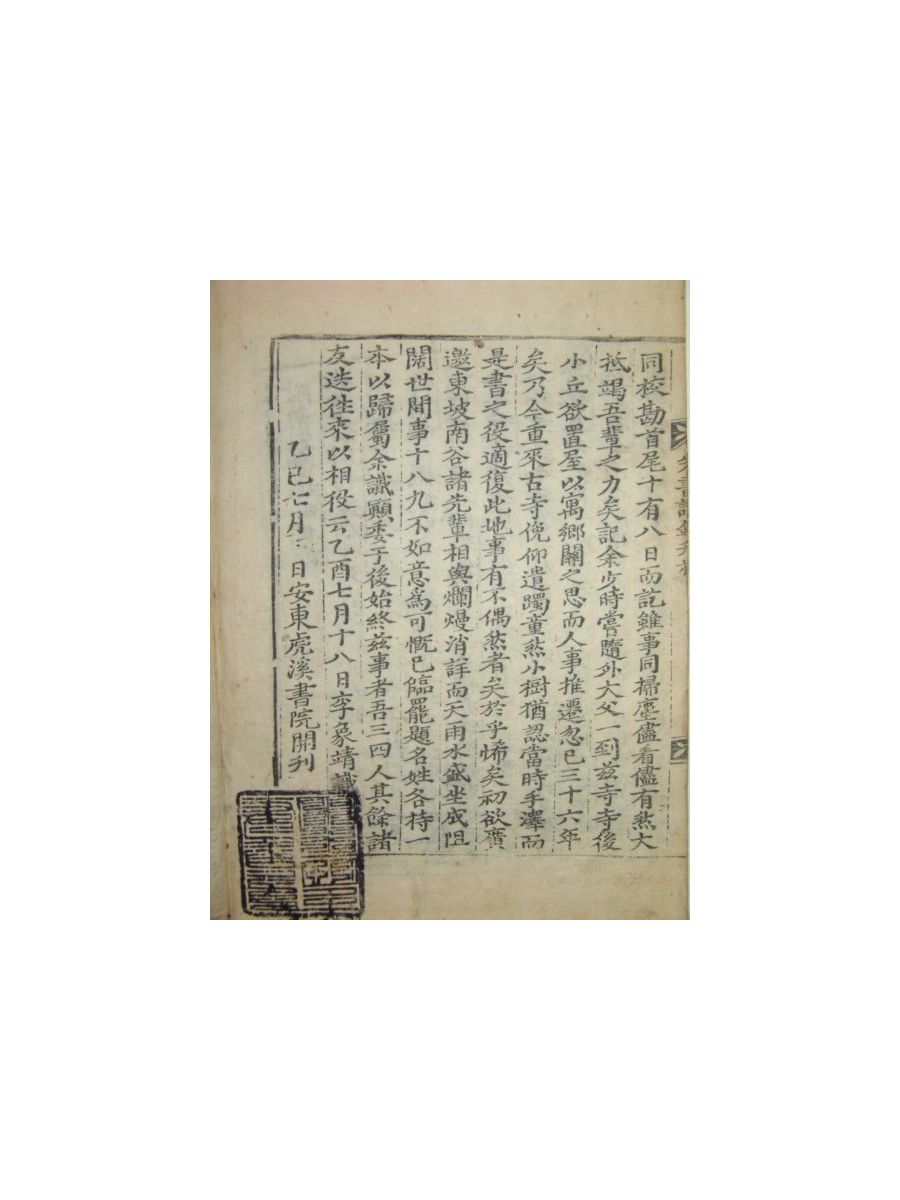 同校勘首尾十有八日而訖雖事同掃塵儘看儘有然大
祗竭吾輩之力矣記余少時嘗隨外大父一到玆寺寺後
小丘欲置屋以寓鄉關之思而人事推遷忽已三十六年
矣乃今重來古寺俛仰遺躅童然小樹猶認當時手澤而
是書之役適復此地事有不偶然者矣於乎悕矣初欲廣
邀東坡南谷諸先輩相與爛熳消詳而天雨水盛坐成阻
闊世間事十八九不如意爲可慨已臨罷題名姓各持一
本以歸屬余識顚委于後始終玆事者吾三四人其餘諸
友迭往來以相役云乙酉七月十八日李象靖識
乙巳七月 日安東虎溪書院開刊